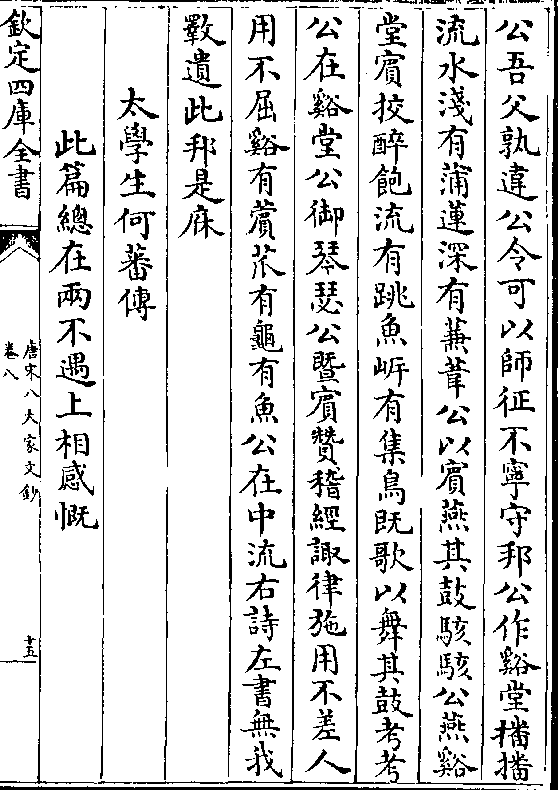 公吾父孰違公令可以師征不寧守邦公作谿堂播播
流水淺有蒲蓮深有蒹葦公以賓燕其鼓駭駭公燕谿
堂賓挍醉飽流有跳魚岸有集鳥既歌以舞其鼓考考
公在谿堂公御琴瑟公暨賓贊稽經諏律施用不差人
用不屈谿有薲苽有龜有魚公在中流右詩左書無我
斁遺此邦是庥
太學生何蕃傳
此篇總在兩不遇上相感慨
欽定四庫全書
唐宋八大家文鈔
卷八
十五